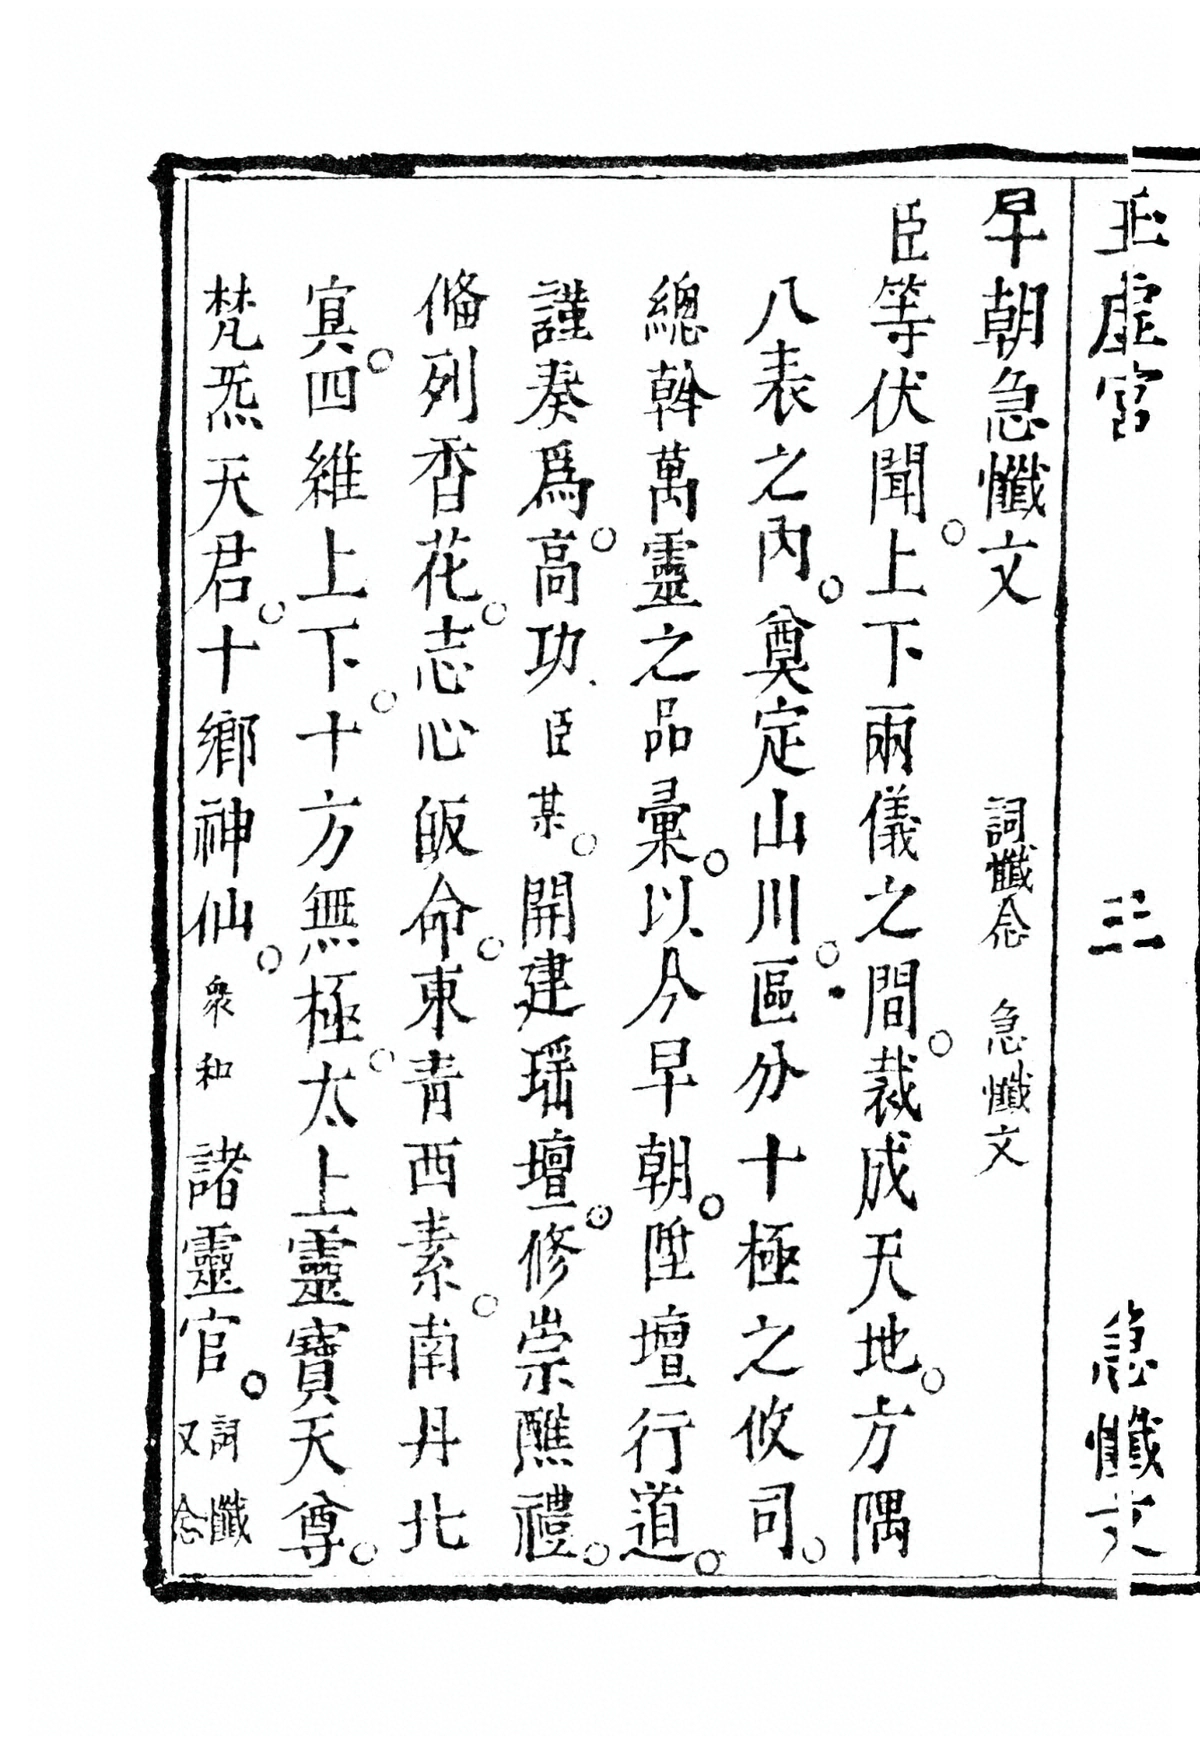 玉虛宮 三 急懺文
早朝急懺文 詞懺念 急懺文
臣等伏聞。上下兩儀之間。裁成天地。方隅
八表之內。奠定山川。區分十極之攸司。
總斡萬靈之品彙。以今早朝。陞壇行道。
謹奏爲。高功臣某。開建瑶壇。修崇醮禮。
俻列香花。志心皈命。東青西素。南丹北
㝠。四維上下。十方無極。太上靈寶天尊。
梵炁天君。十鄉神仙。衆和 諸靈官。詞懺
又念